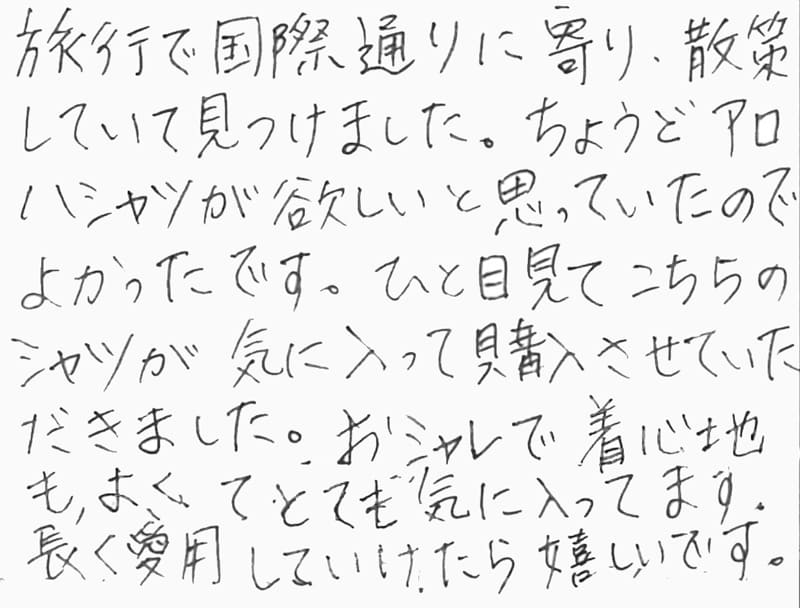 旅行で国際通りに寄り、散策
していて見つけました。ちょうどアロ
ハシャツが欲しいと思っていたので
よかったです。ひと目見てこちらの
シャツが気に入って購入させていた
だきました。おシャレで着心地
も、よくてとても気に入ってます。
長く愛用していけたら嬉しいです。